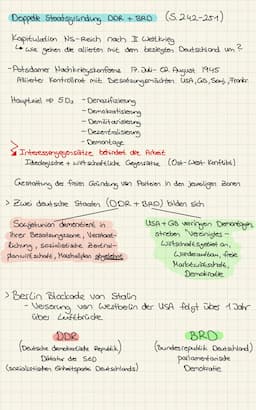 Doppelte Staatsgründung DDR + BRD (S. 242-251)
Kapitulation NS-Reich nach II Weltkrieg
↳ Wie gehen die alliierten mit dem besiegten Deutschland um?
-Potsdamer Nachkriegskonferenz 17. Juli - 02. August 1945
Alliierter Kontrollrat mit Besatzungsmächten USA, GB, Sowj., Frankr.
Hauptziel ⇒ 5D's - Denazifizierung
- Demokratisierung
- Demilitarisierung
- Dezentralisierung
- Demontage
Interessengegensätze behindert die Arbeit
Ideologische + wirtschaftliche Gegensätze (Ost-West-Konflikt)
Gestattung der freien Gründung von Parteien in den jeweiligen Zonen
> Zwei deutsche Staaten (DDR + BRD) bilden sich
Sowjetunion demontiert in
ihrer Besatzungszone, Verstaat-
lichung, sozialistische Zentral-
planwirtschaft, Marshallplan abgelehnt
USA + GB verringern Demontagen,
streben Vereinigtes -
Wirtschaftsgebiet an,
Wiederaufbau, freie
Marktwirtschaft,
Demokratie
> Berlin Blockade von Stalin
- Versorung von Westberlin der USA folgt über 1 Jahr
über Luftbrücke
DDR
(Deutsche demokratische Republik)
Diktatur der SED
(sozialistischen Einheitspartei Deutschlands)
BRD
(Bundesrepublik Deutschland)
parlamentarische
Demokratie